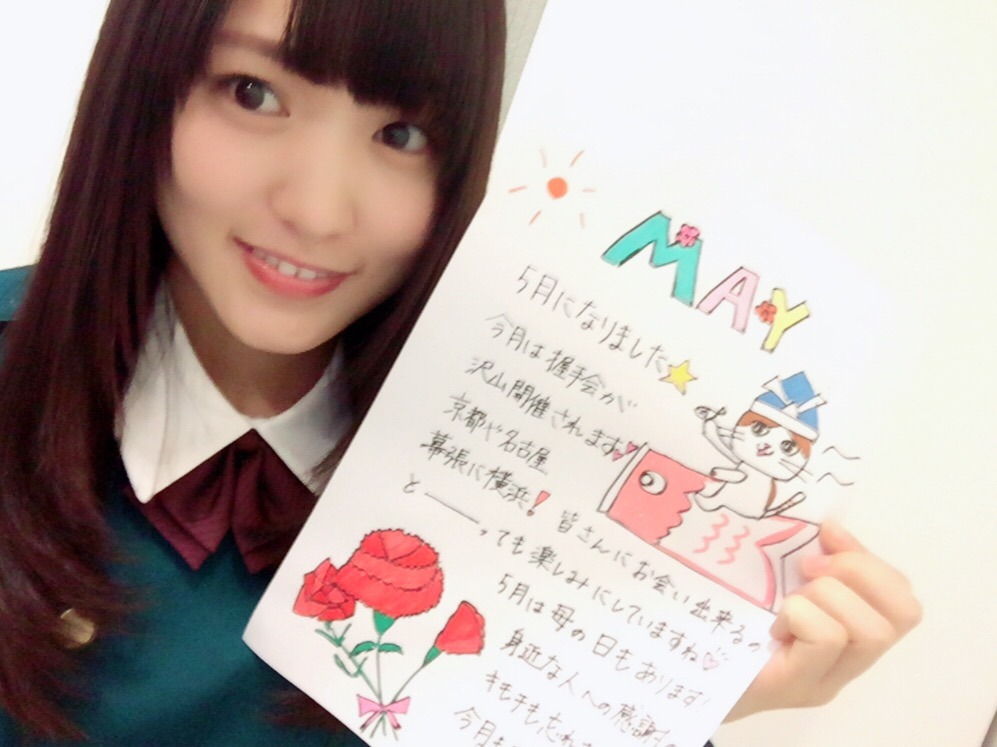 MAY
5月になりました
今月は握手会が
沢山開催されます
京都や名古屋
幕張に横浜!
皆さんにお会い出来るの
と――っても楽しみにしていますね
5月は母の日もあります!
身近な人への感謝の
キモチも忘れ
今月も